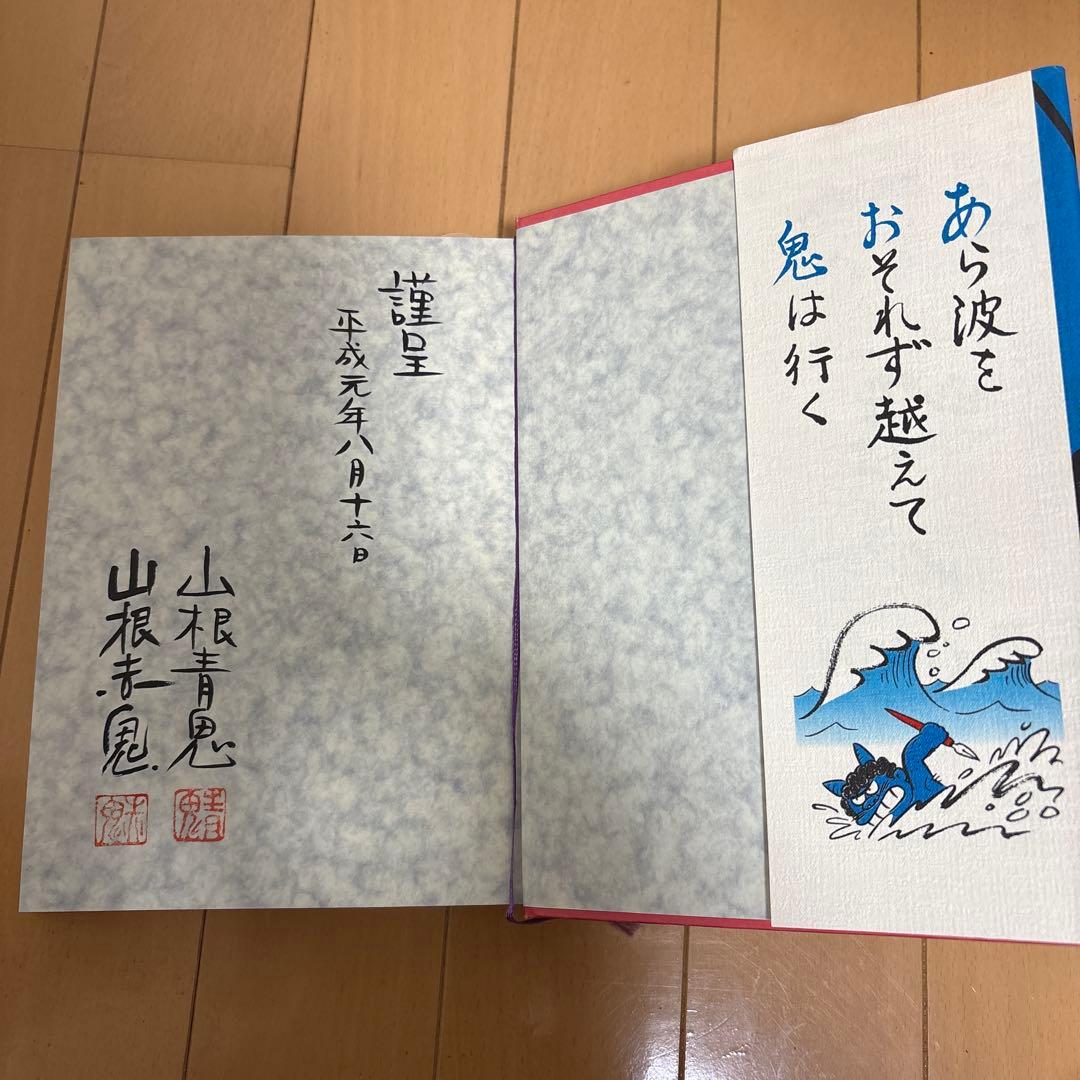 あら波を
おそれず越えて
鬼は行く
謹呈
平成元年八月十六日
山根青鬼
山根赤鬼
青鬼
赤鬼